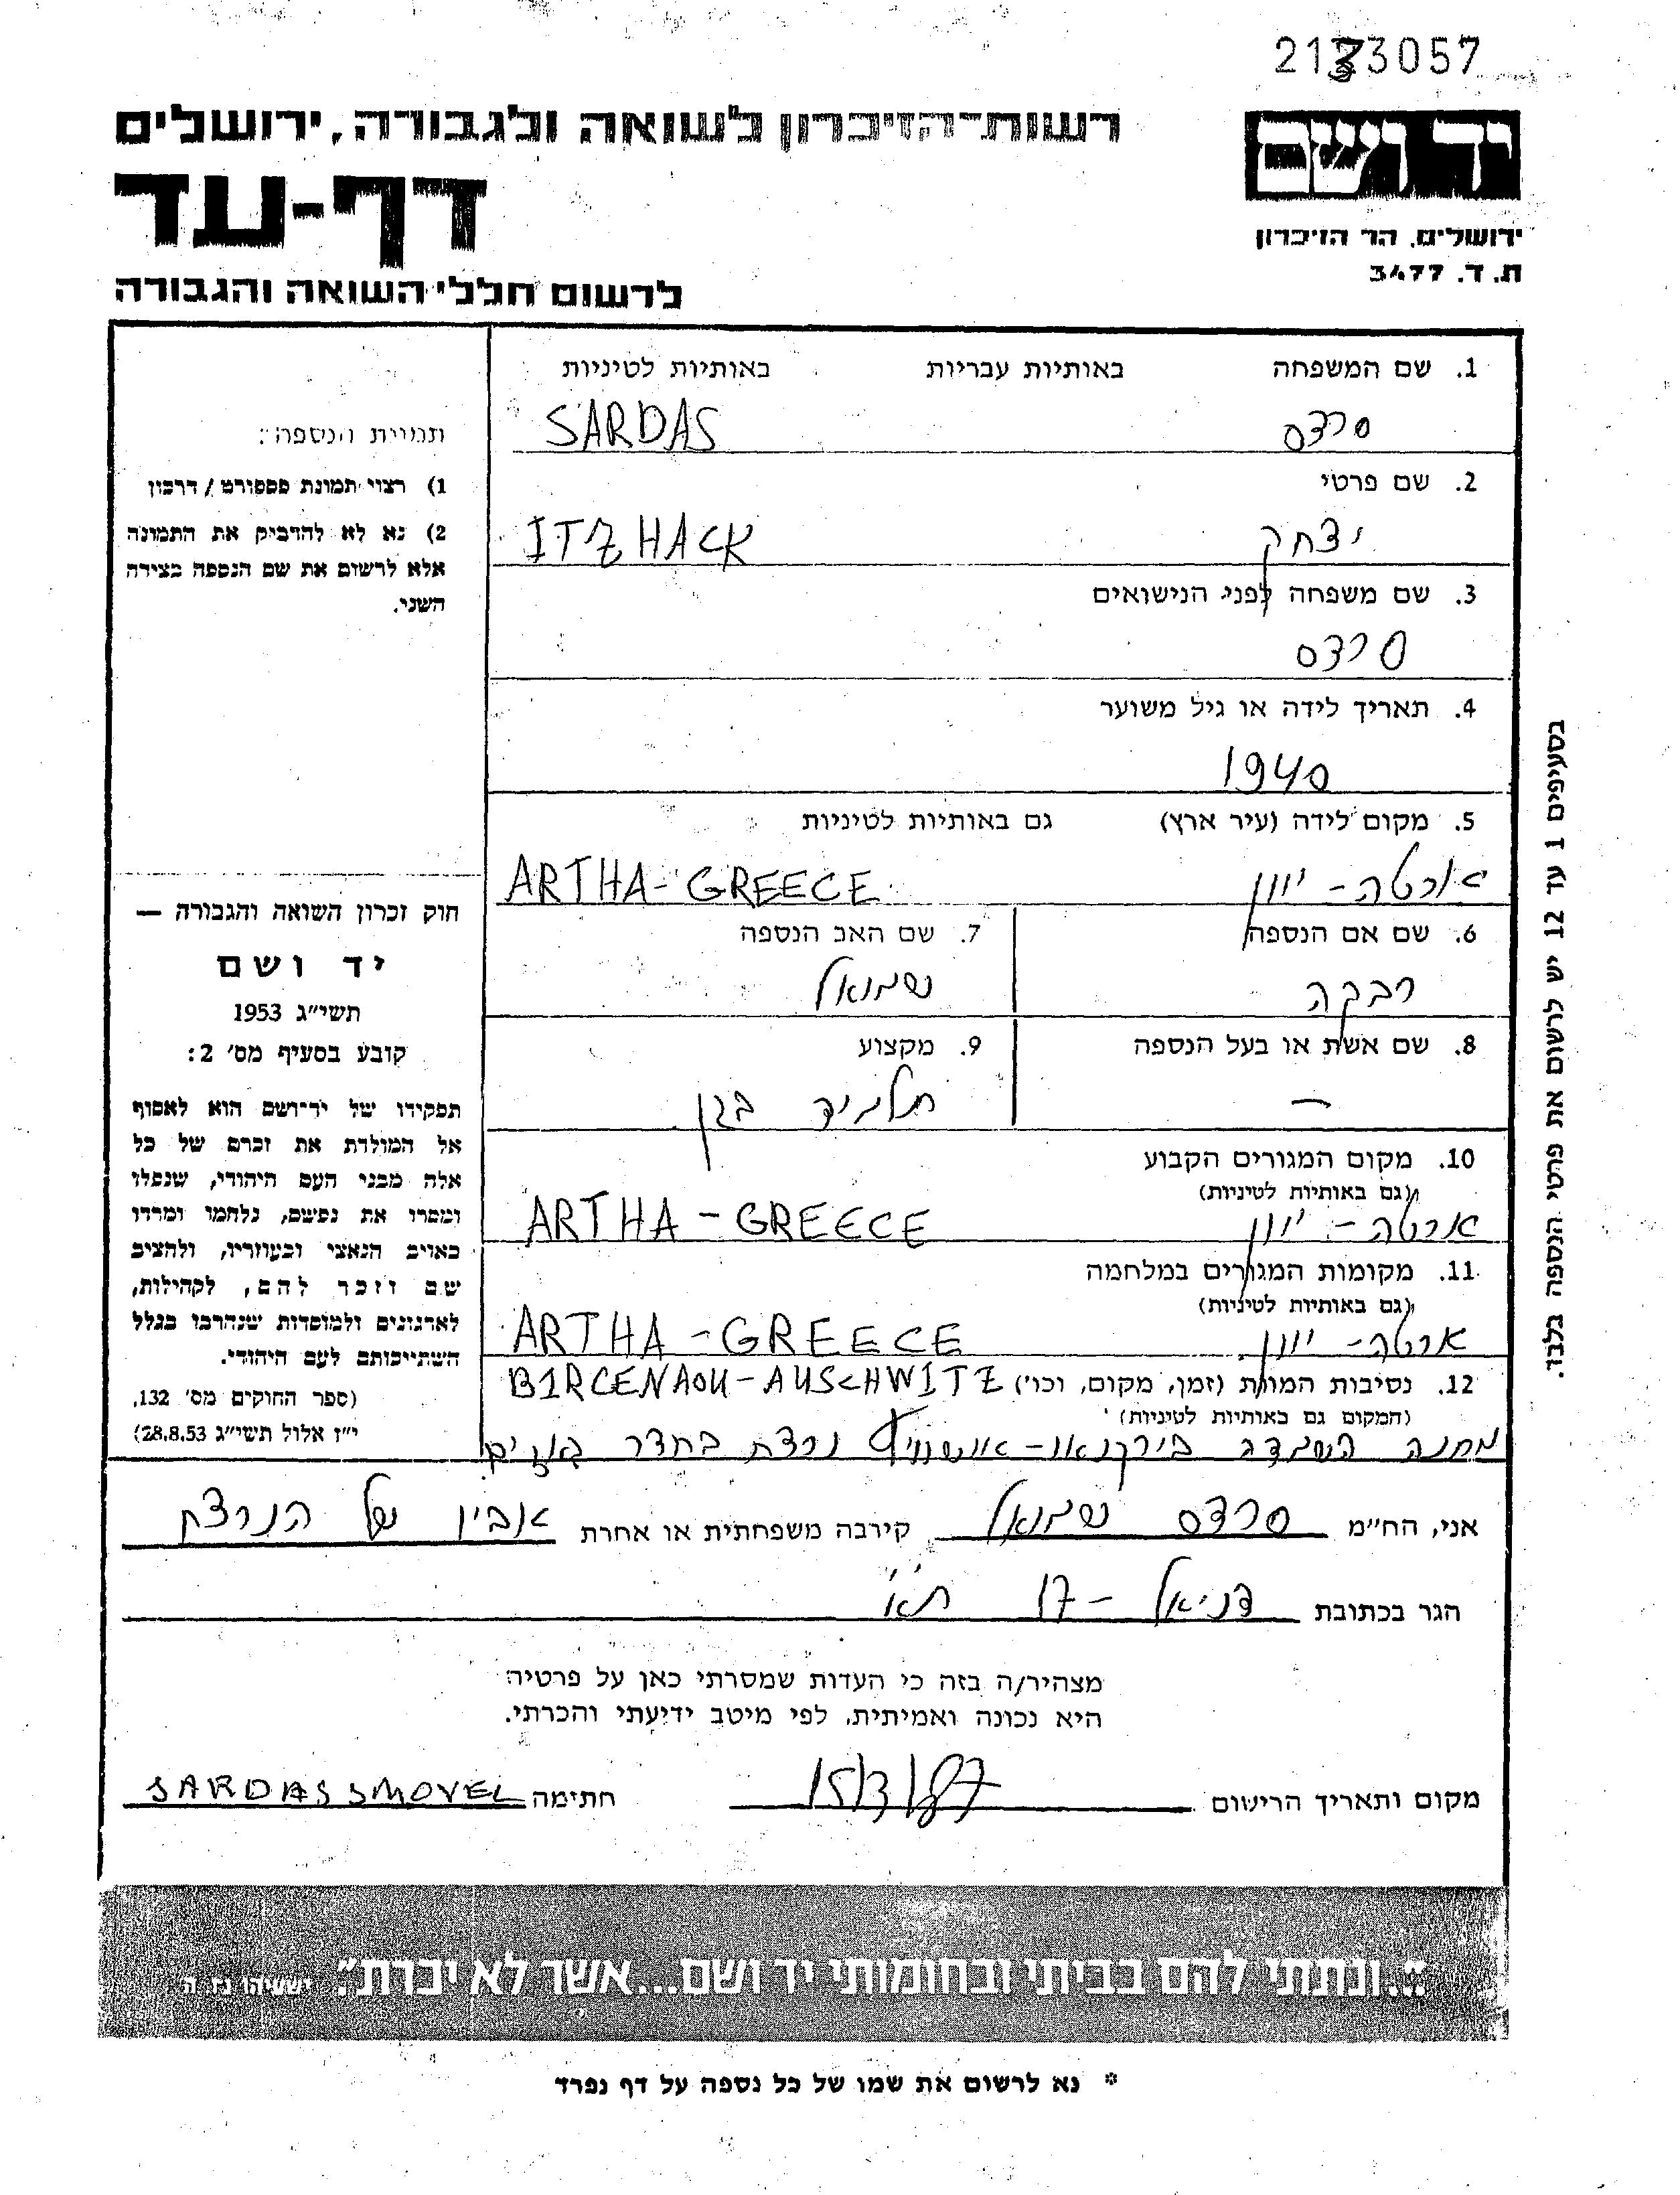 2133057
רשות-הזיכרון לשואה ולגבורה, ירושלים
יד ושם
דף-עד
ירושלים, הר הזיכרון
ת. ד. 3477
לרשום חללי השואה והגבורה
1. שם המשפחה באותיות עבריות באותיות לטיניות
סרדס SARDAS
2. שם פרטי
יצחק ITZHACK
3. שם משפחה לפני הנישואים
סרדס
4. תאריך לידה או גיל משוער
1940
5. מקום לידה (עיר ארץ) גם באותיות לטיניות
ארטה - יוון ARTHA - GREECE
6. שם אם הנספה 7. שם האב הנספה
רבקה שמואל
8. שם אשת או בעל הנספה 9. מקצוע
— תלמיד בגן
10. מקום המגורים הקבוע
(גם באותיות לטיניות)
ארטה - יוון ARTHA - GREECE
11. מקומות המגורים במלחמה
(גם באותיות לטיניות)
ארטה - יוון ARTHA - GREECE
12. נסיבות המוות (זמן, מקום, וכו') BIRCENAOU - AUSCHWITZ
(המקום גם באותיות לטיניות)
מחנה השמדה בירקנאו - אושוויץ נרצח בחדר גאזים
תמונת הנספה:
1) רצוי תמונת פספורט / דרכון
2) נא לא להדביק את התמונה
אלא לרשום את שם הנספה בצידה
השני.
חוק זכרון השואה והגבורה —
יד ושם
תשי"ג 1953
קובע בסעיף מס' 2:
תפקידו של יד-ושם הוא לאסוף
אל המולדת את זכרם של כל
אלה מבני העם היהודי, שנפלו
ומסרו את נפשם, נלחמו ומרדו
באויב הנאצי ובעוזריו, ולהציב
שם וזכר להם, לקהילות,
לארגונים ולמוסדות שנהרבו בגלל
השתייכותם לעם היהודי.
(ספר החוקים מס' 132,
י"ז אלול תשי"ג 28.8.53)
בסעיפים 1 עד 12 יש לרשום את פרטי הנספה בלבד.
אני, הח"מ סרדס שמואל קירבה משפחתית או אחרת אביו של הנרצח
הגר בכתובת דניאל - 17 ת"א
מצהיר/ה בזה כי העדות שמסרתי כאן על פרטיה
היא נכונה ואמיתית, לפי מיטב ידיעתי והכרתי.
מקום ותאריך הרישום 15/3/87 חתימה SARDAS SMOVEL
"..ונתתי להם בביתי ובחומותי יד ושם...אשר לא יכרת". ישעיהו נו ה
* נא לרשום את שמו של כל נספה על דף נפרד